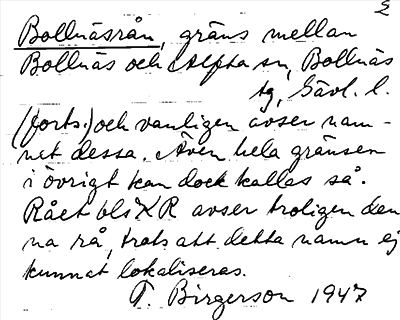 2
Bollnäsrån, gräns mellan
Bollnäs och Alfta sn, Bollnäs
tg, Gävl. l.
(forts.) och vanligen avser nam-
net dessa. Även hela gränsen
i övrigt kan dock kallas så.
Rået bls X R avser troligen den
na rå, trots att detta namn ej
kunnat lokaliseras.
T. Birgerson 1947